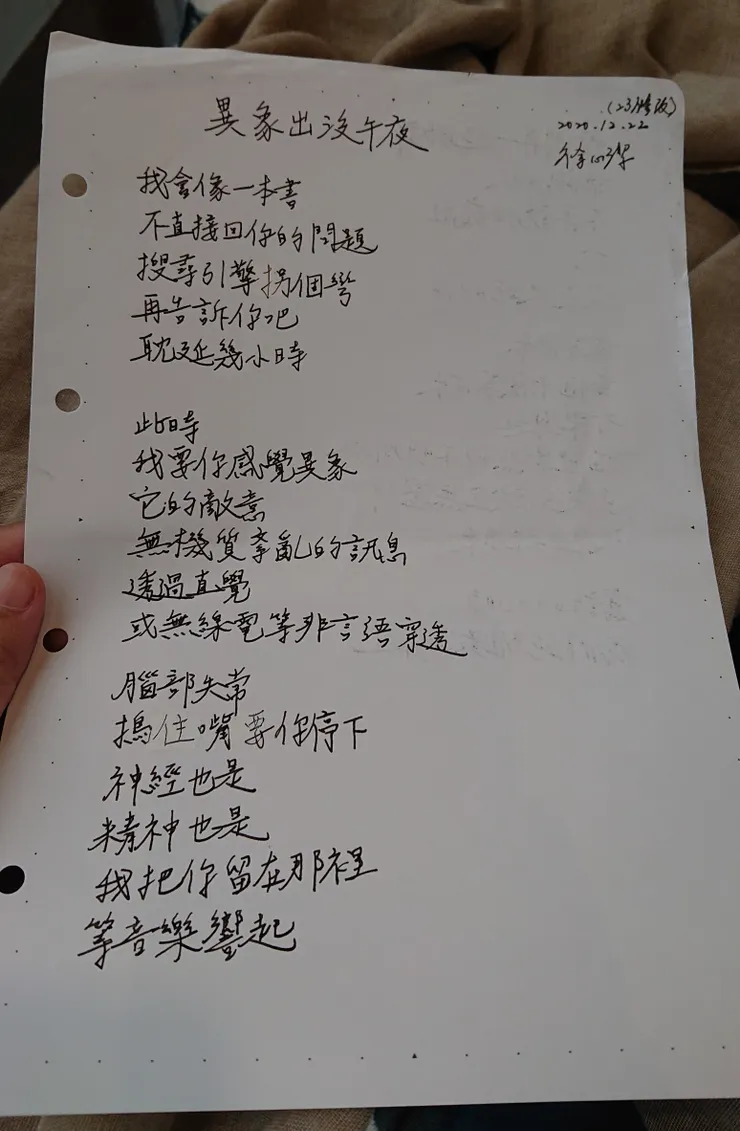 異象出沒午夜
(23修版)
2020.12.22
徐
我會像一本書
不直接回你的問題
搜尋引擎拐個彎
再告訴你吧
耽延幾小時
此時
我要你感覺異象
它的敵意
無機質紊亂的訊息
透過直覺
或無線電等非言語穿透
腦部失常
摀住嘴要你停下
神經也是
精神也是
我把你留在那裡
等音樂響起